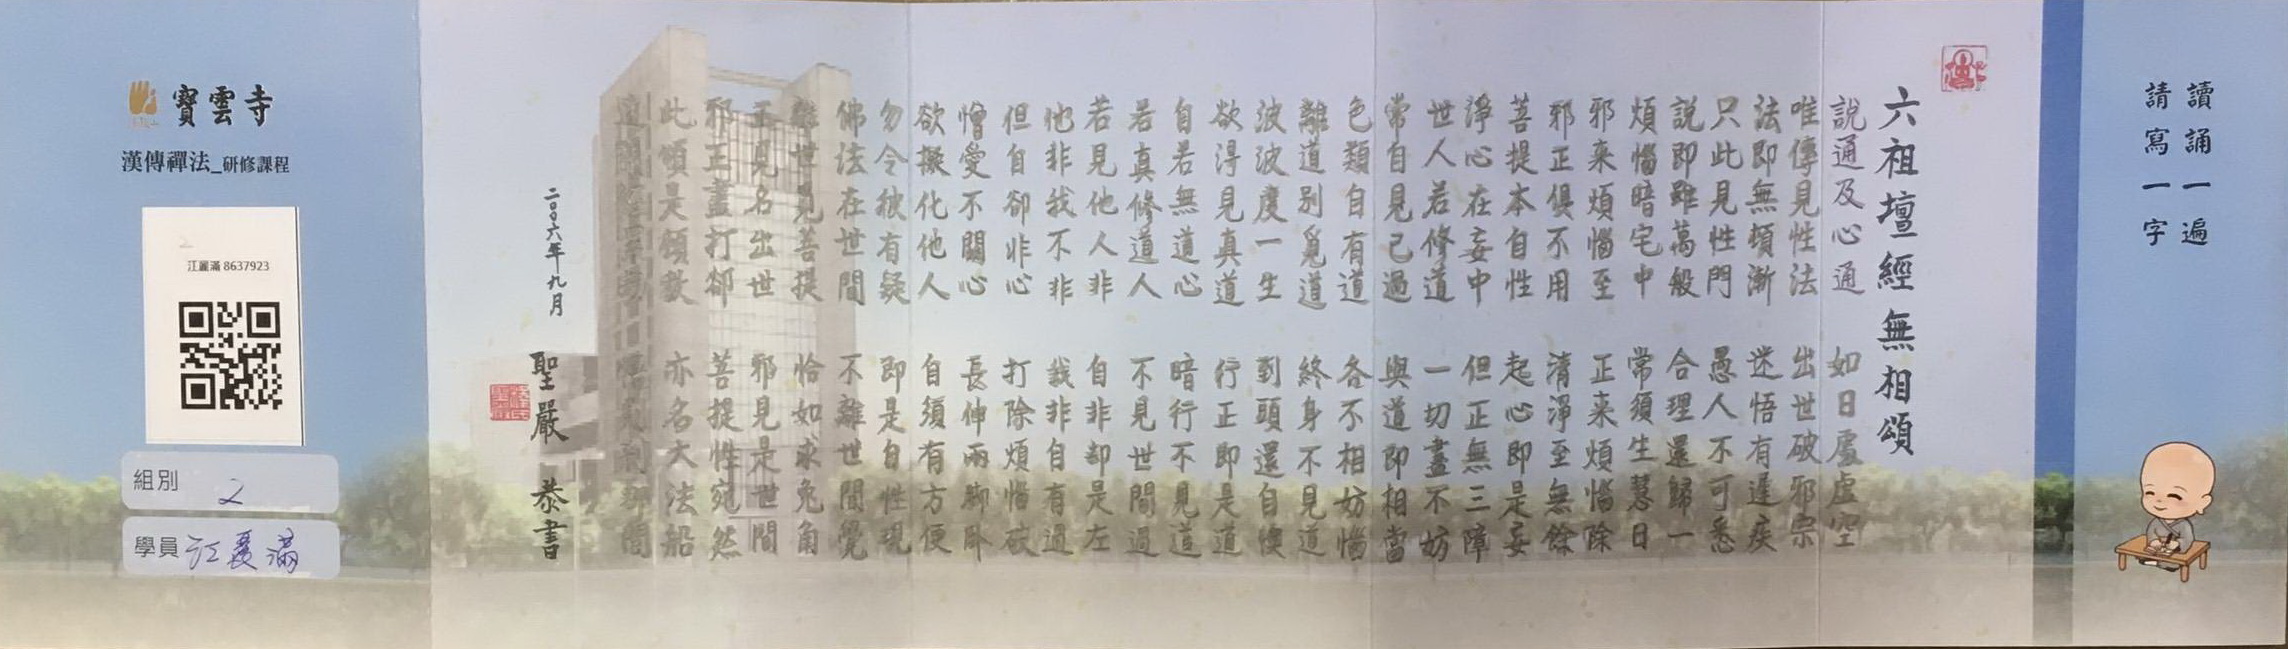 讀誦一遍
請寫一字
六祖壇經無相頌
說通及心通 如日處虛空
唯傳見性法 出世破邪宗
法即無頓漸 迷悟有遲疾
只此見性門 愚人不可悉
說即雖萬般 合理還歸一
煩惱暗宅中 常須生慧日
邪來煩惱至 正來煩惱除
邪正俱不用 清淨至無餘
菩提本自性 起心即是妄
淨心在妄中 但正無三障
世人若修道 一切盡不妨
常自見己過 與道即相當
色類自有道 各不相妨惱
離道別覓道 終身不見道
波波度一生 到頭還自懊
欲得見真道 行正即是道
自若無道心 暗行不見道
若真修道人 不見世間過
若見他人非 自非却是左
他非我不非 我非自有過
但自卻非心 打除煩惱破
憎愛不關心 長伸兩腳臥
欲擬化他人 自須有方便
勿令彼有疑 即是自性現
佛法在世間 不離世間覺
離世覓菩提 恰如求兔角
正見名出世 邪見是世間
邪正盡打卻 菩提性宛然
此頌是頓教 亦名大法船
迷聞經累劫 悟則剎那間
二〇〇六年九月
聖嚴 恭書
寶雲寺
漢傳禪法_研修課程
2
江麗滿 8637923
組別 2
學員 江麗滿